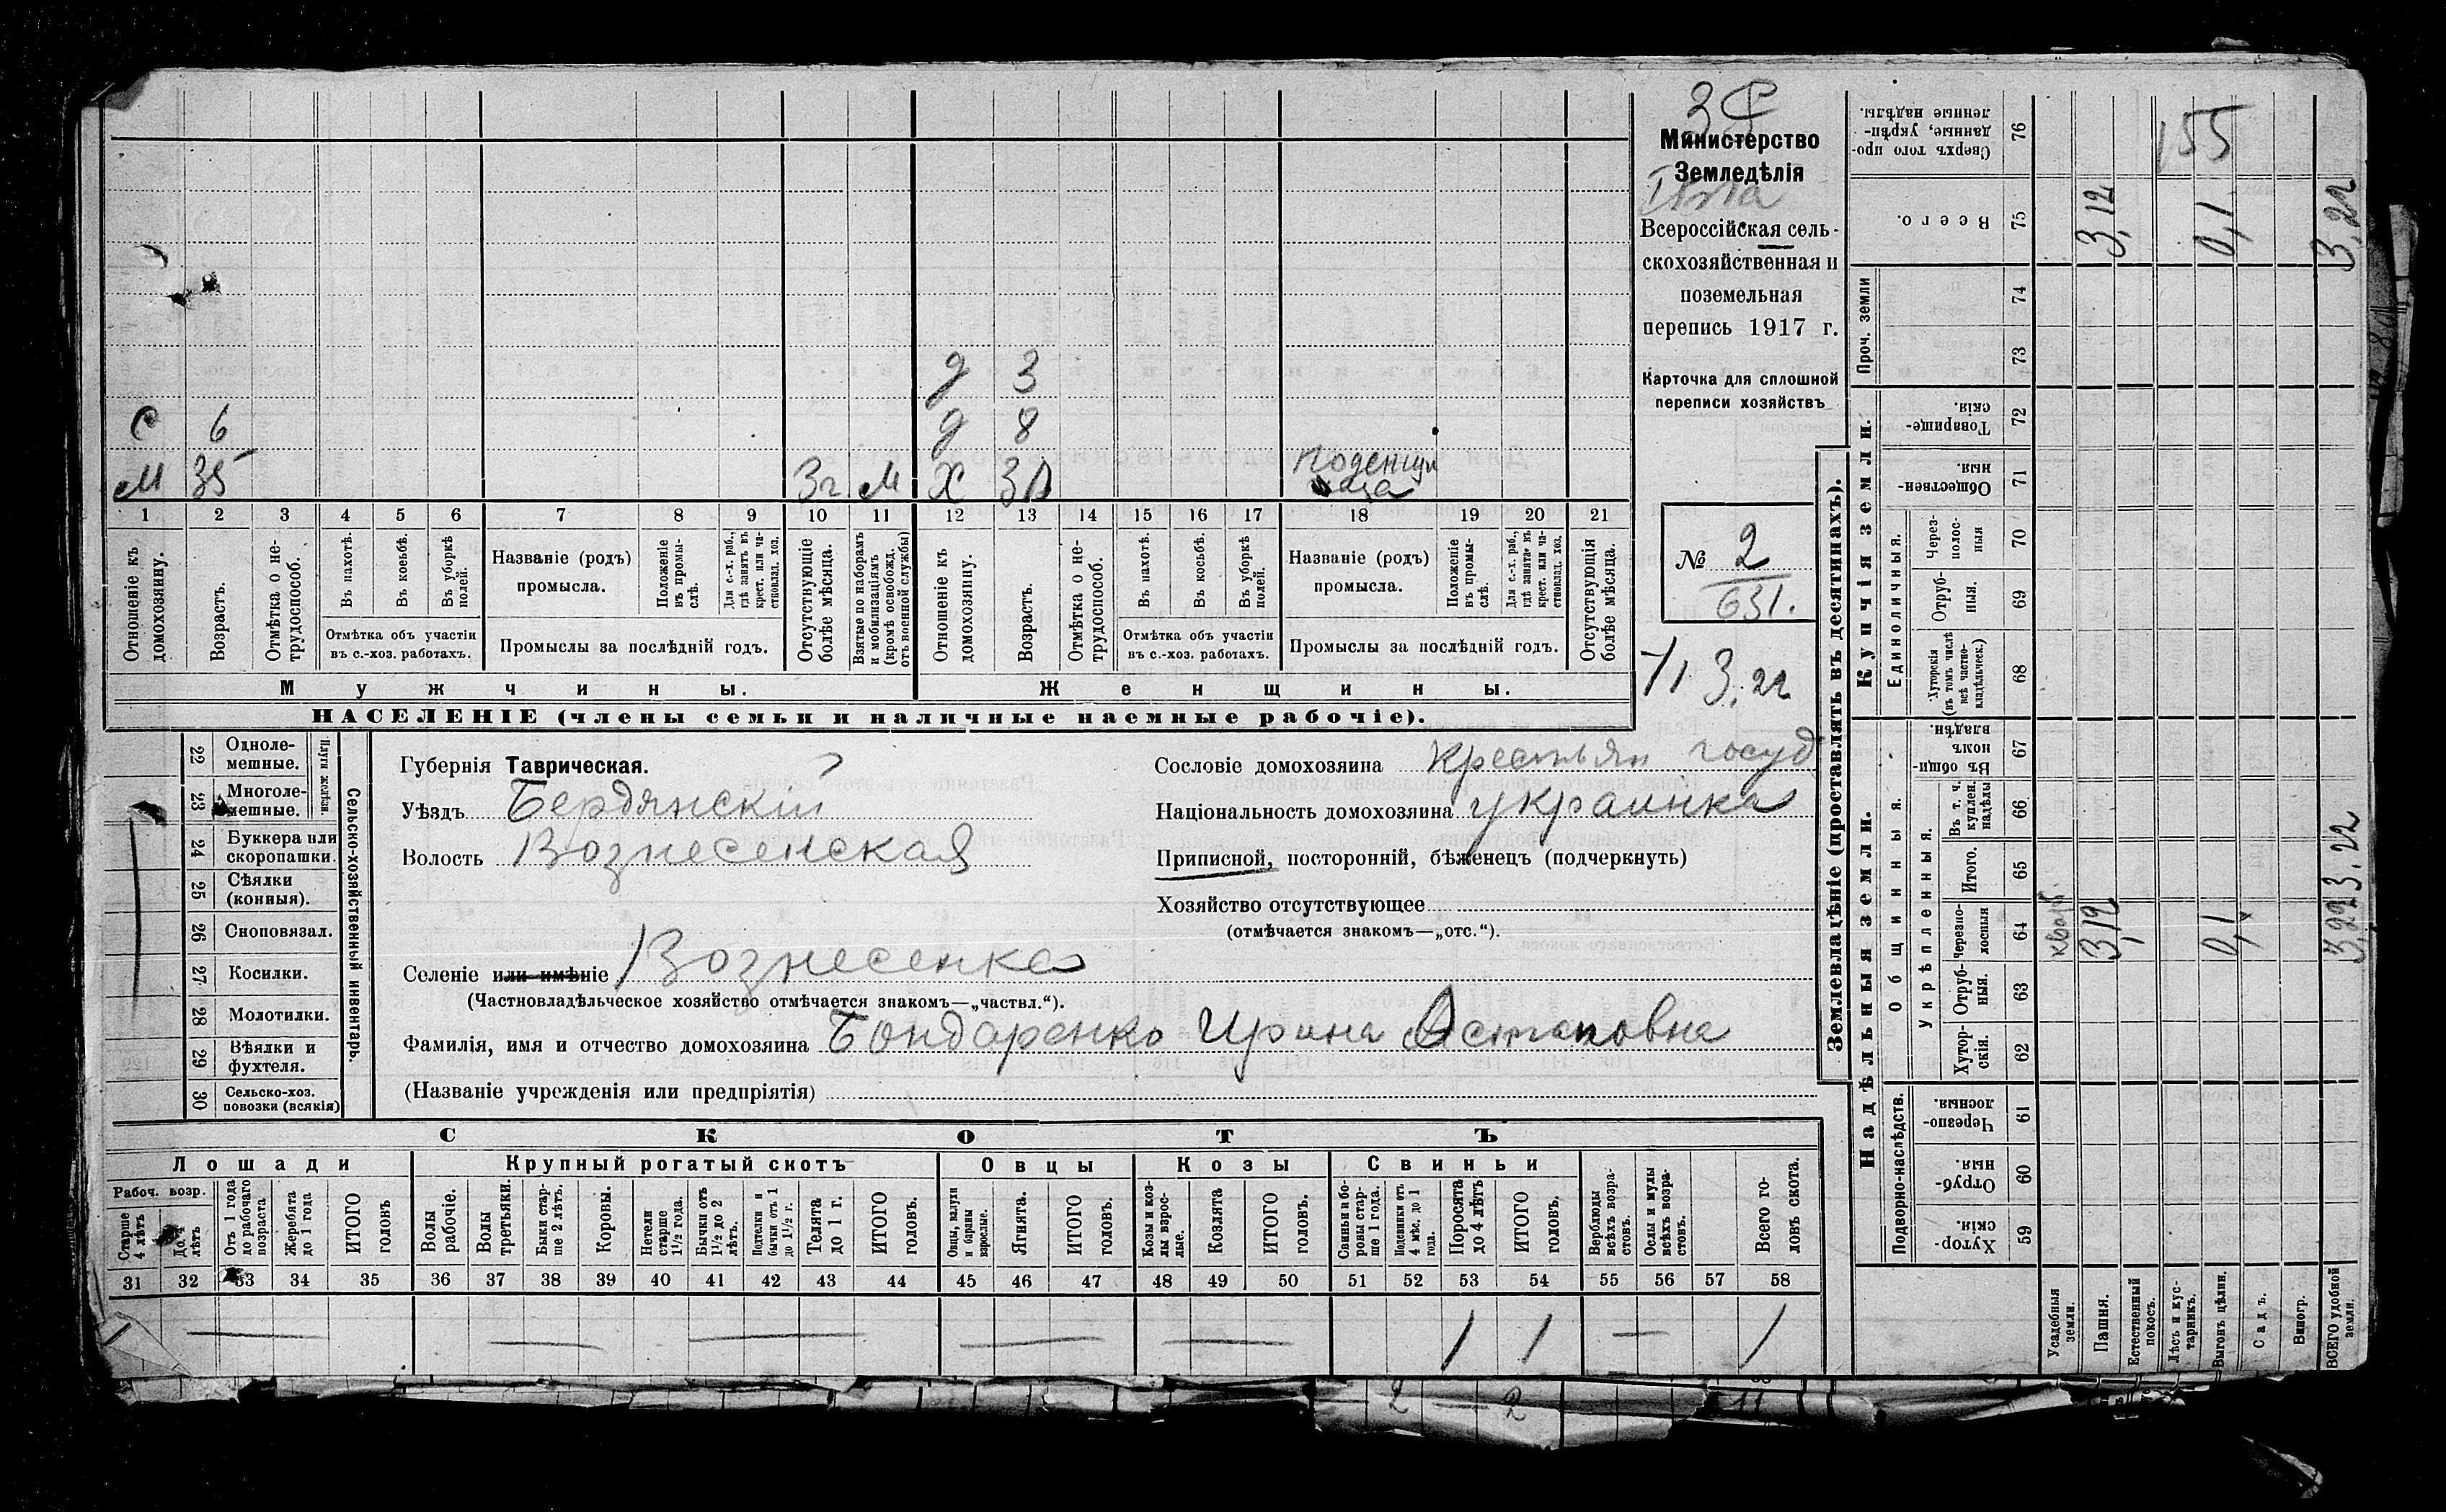 Министерство
Земледѣлія
Всероссійская сель-
скохозяйственная и
поземельная
перепись 1917 г.
Карточка для сплошной
переписи хозяйствъ
№ 2
631.
3,22
д 3
С 6 д 8
М 35 3г М Х 3
1 2 3 4 5 6 7 8 9 10 11 12 13 14 15 16 17 18 19 20 21
Отношеніе къ домохозяину.
Возрастъ.
Отмѣтка о не-трудоспособ.
Въ пахотѣ.
Въ косьбѣ.
Въ уборкѣ полей.
Отмѣтка объ участіи
въ с.-хоз. работахъ.
Названіе (родъ)
промысла.
Положеніе въ промы-слѣ.
Для с.-х. раб., гдѣ занятъ въ крест. или ча-стновлад. хоз.
Промыслы за послѣдній годъ.
Отсутствующіе болѣе мѣсяца.
Взятые по наборамъ и мобилизаціямъ (кромѣ освобожд. отъ военной службы)
Отношеніе къ домохозяину.
Возрастъ.
Отмѣтка о не-трудоспособ.
Въ пахотѣ.
Въ косьбѣ.
Въ уборкѣ полей.
Отмѣтка объ участіи
въ с.-хоз. работахъ.
Названіе (родъ)
промысла.
Положеніе въ промы-слѣ.
Для с.-х. раб., гдѣ занята въ крест. или ча-стновлад. хоз.
Промыслы за послѣдній годъ.
Отсутствующія болѣе мѣсяца.
Мужчины. Женщины.
НАСЕЛЕНІЕ (члены семьи и наличные наемные рабочіе).
22 Однолемешные.
23 Многолемешные.
24 Буккера или скоропашки.
25 Сѣялки (конныя).
26 Сноповязал.
27 Косилки.
28 Молотилки.
29 Вѣялки и фухтеля.
30 Сельско-хоз. повозки (всякія)
Сельско-хозяйственный инвентарь.
Губернія Таврическая.
Уѣздъ Бердянскій
Волость Вознесенская
Селеніе или имѣніе Вознесенка
(Частновладѣльческое хозяйство отмѣчается знакомъ—„частвл.“).
Фамилія, имя и отчество домохозяина Бондаренко Ирина Остаповна
(Названіе учрежденія или предпріятія)
Сословіе домохозяина крестьян госуд
Національность домохозяина украинка
Приписной, посторонній, бѣженецъ (подчеркнуть)
Хозяйство отсутствующее
(отмѣчается знакомъ—„отс.“).
СКОТЪ
Лошади Крупный рогатый скотъ Овцы Козы Свиньи
Рабоч. возр.
Старше 4 лѣтъ
До 4 лѣтъ
Отъ 1 года до рабочаго возраста
Жеребята до 1 года
ИТОГО головъ
Волы рабочіе.
Волы третьяки.
Быки стар-ше 2 лѣтъ.
Коровы.
Нетели старше 1½ года.
Бычки отъ 1½ до 2 лѣтъ.
Подтелки и бычки отъ 1 до 1½ г.
Телята до 1 г.
ИТОГО головъ.
Овцы, валухи и бараны взрослые.
Ягнята.
ИТОГО головъ.
Козы и коз-лы взрос-лые.
Козлята
ИТОГО головъ.
Свиньи и бо-ровы стар-ше 1 года.
Подсвинки отъ 4 мѣс. до 1 года.
Поросята до 4 лѣтъ
ИТОГО головъ.
Верблюды всѣхъ возра-стовъ.
Ослы и мулы всѣхъ возра-стовъ.
Всего го-ловъ скота.
31 32 33 34 35 36 37 38 39 40 41 42 43 44 45 46 47 48 49 50 51 52 53 54 55 56 57 58
1 1 1
Землевладѣніе (проставлять въ десятинахъ).
Надѣльныя земли. Купчія земли. Проч. земли
Подворно-наслѣдств.
Общинныя.
Укрѣпленныя.
Единоличныя.
59 Хутор-скія.
60 Отруб-ныя.
61 Черезпо-лосныя.
62 Хутор-скія.
63 Отруб-ныя.
64 Черезпо-лосныя
65 Итого.
66 Въ т. ч. куплен. надѣлы
67 Въ общин-номъ владѣн.
68 Хуторскія (въ томъ числѣ всѣ частно-владѣльческ.)
69 Отруб-ныя.
70 Через-полос-ныя
71 Обществен-ныя
72 Товарище-скія.
73
74
75 Всего.
76 Сверхъ того про-данные, укрѣп-ленные надѣлы.
Усадебныя земли.
Пашня. 3,12 3,12
Естественный покосъ.
Лѣсъ и кус-тарникъ.
Выгонъ цѣлин. 0,1 0,1
Садъ.
Виногр.
ВСЕГО удобной земли. 3,22 3,22
155